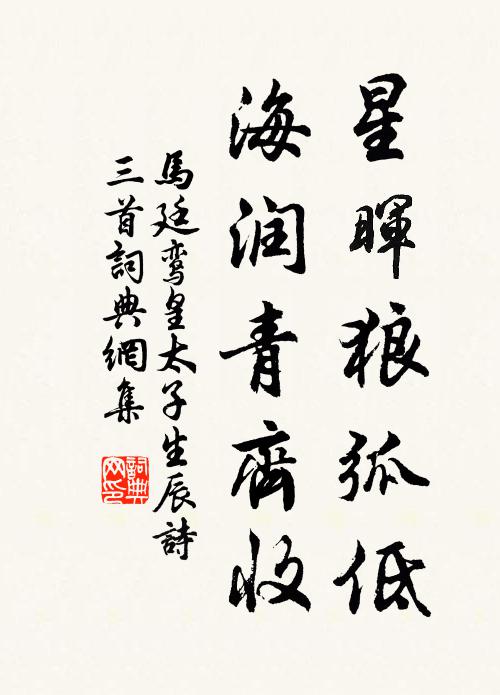 星暉狼弧低
海润青齊收
馬廷鸞皇太子生辰詩
三首詞典網集
詞典網印